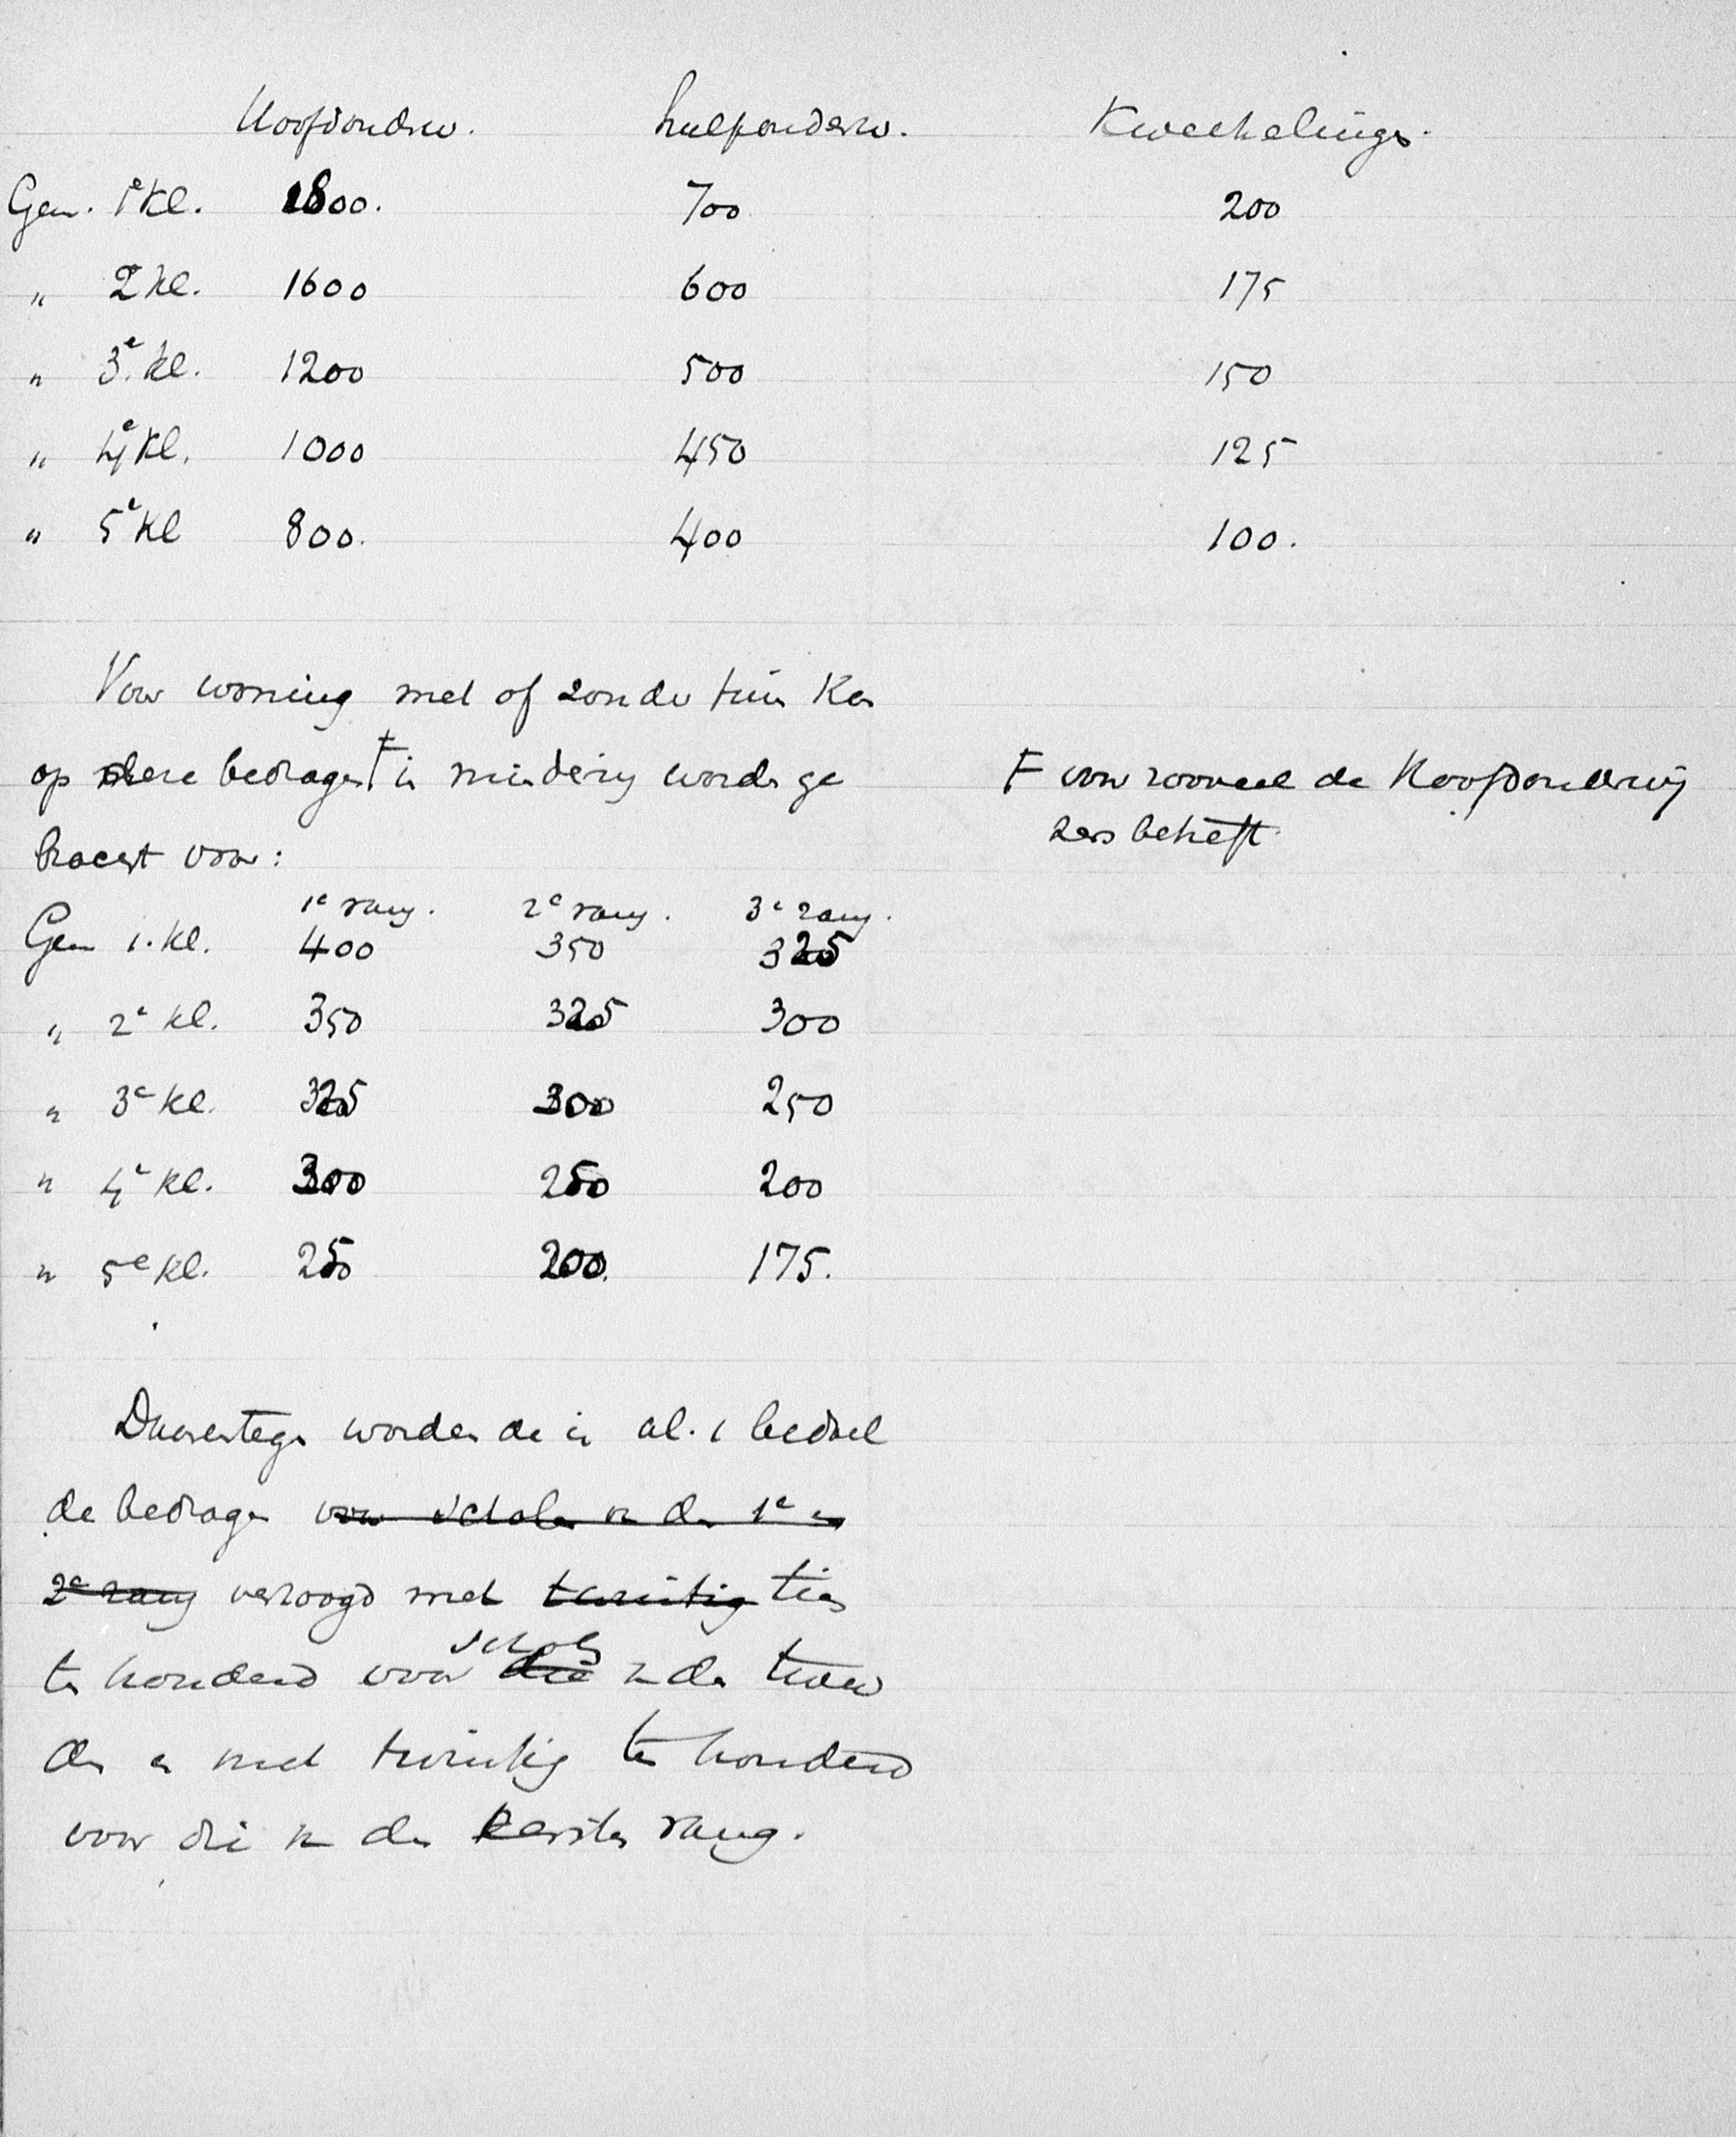 Hoofdonderw. hulponderw. Kweekelingen.
Gem. 1e Kl. 1800. 700 200
" 2e Kl. 1600 600 175
" 3e Kl. 1200 500 150
" 4e Kl. 1000 450 125
" 5e Kl 800. 400 100.
Voor woning met of zonder tuin kan
op deze bedragen Ⱶ in mindering worden ge
bracht voor:
Ⱶ voor zooveel de Hoofdonderwij
zers betreft
1e rang. 2e rang. 3e rang.
Gem 1. Kl. 400 350 325
" 2e Kl. 350 325 300
" 3e Kl. 325 300 250
" 4e Kl. 300 250 200
" 5e Kl. 250 200. 175.
Daarentegen worden de in al. 1 bedoel
de bedragen voor scholen van den 1e en
2e rang verhoogd met twintig tien
ten honderd voor die scholen van den twee
den en met twintig ten honderd
voor die van den eersten rang.